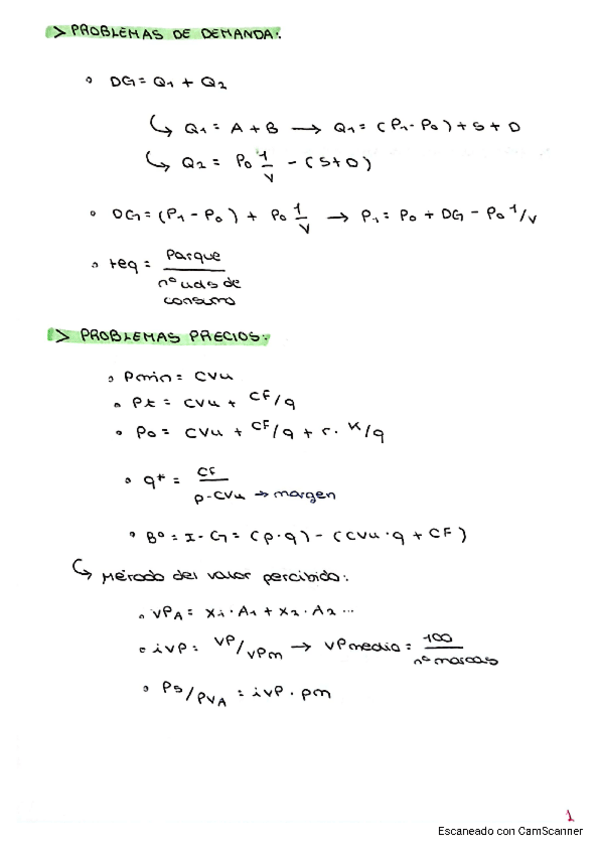 > PROBLEMAS DE DEMANDA:.
• DG = Q1 + Q2
↳ Q1 = A + B → Q1 = (P1 - P0) + S + D
↳ Q2 = P0 1/V - (S+D)
• DG = (P1 - P0) + P0 1/V → P1 = P0 + DG - P0 1/V
• teq = Parque / nº uds de consumo
> PROBLEMAS PRECIOS:.
• Pmin = CVu
• Pt = CVu + CF/q
• Po = CVu + CF/q + r. K/q
• q* = CF / p-CVu → margen
• Bº = I - G = (p·q) - (CVu·q + CF)
↳ Método del valor percibido:
• VPA = Xi·A1 + X2·A2 ...
• iVP = VP/VPm → VPmedio = 100 / nº marcas
• Ps/PVA = iVP · pm
1
Escaneado con CamScanner